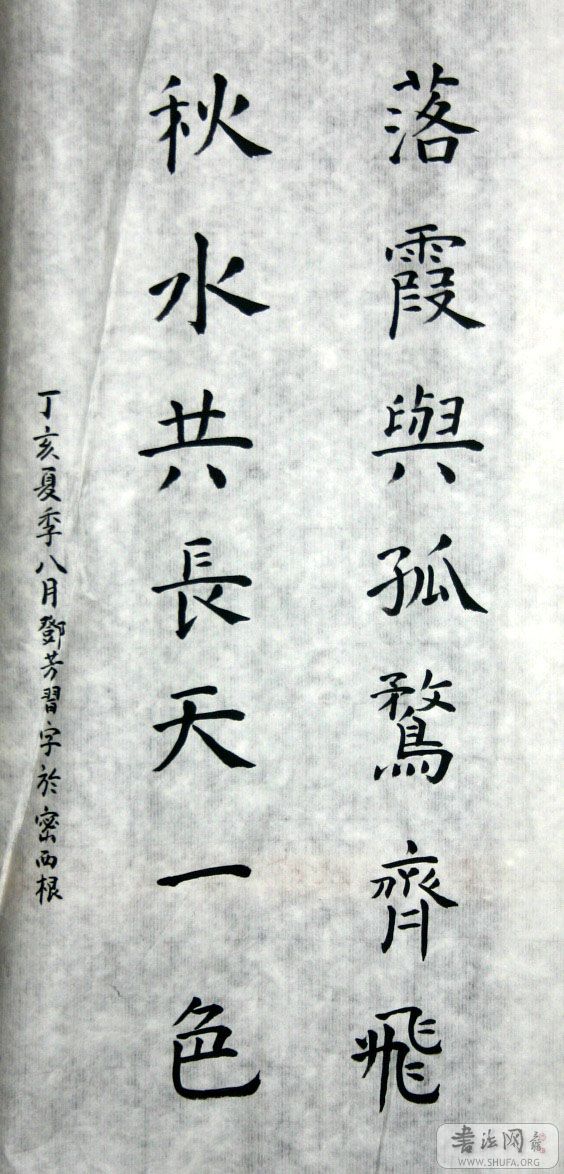 落霞與孤鶩齊飛
秋水共長天一色
丁亥夏季八月鄧芳習字於密西根
書法网
WWW.SHUFA.ORG